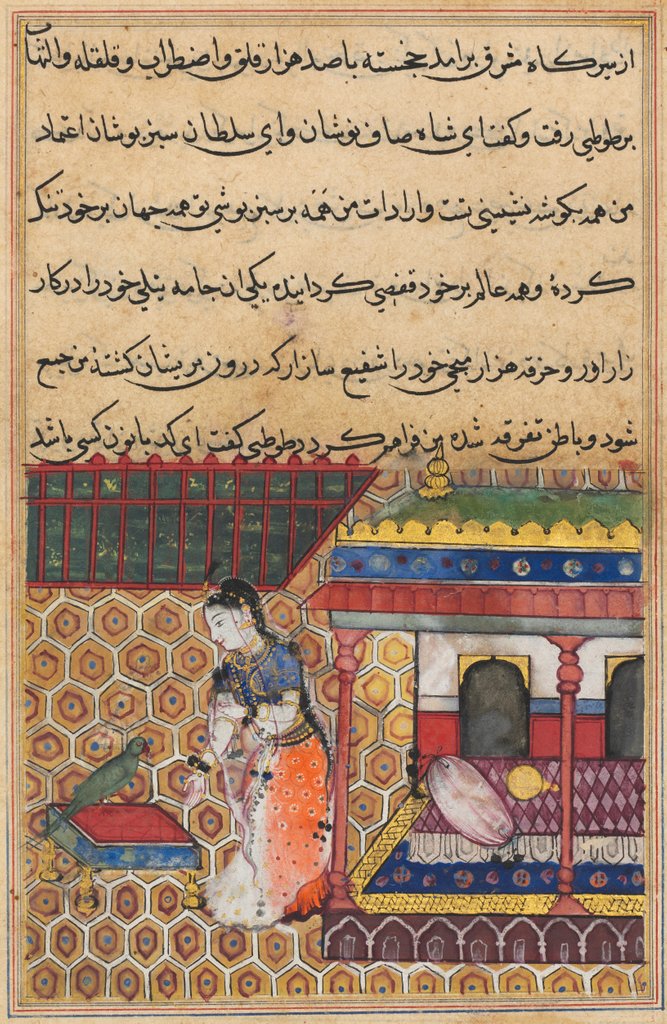 از سیرکاه شرق برامد خجسته باصد هزار قلق و اضطراب و قلقله والتهاب
بر طوطی رفت و کفت ای شاه صاف نوشان و ای سلطان سبز پوشان اعتماد
من همه بکوشه نشینی تست و ارادات من همه بر سبز پوشی تو همه جهان بر خود تنک
کرده و همه عالم بر خود قفصی کردانیده یکی ان جامه نیلی خود را در کار
زار اور و خرقه هزار میخی خود را شفیع ساز ار که درون بریشان کشته من جمع
شود و باطن تفرقه شده من فراهم کردد طوطی کفت ای کدبانو کسی باشد